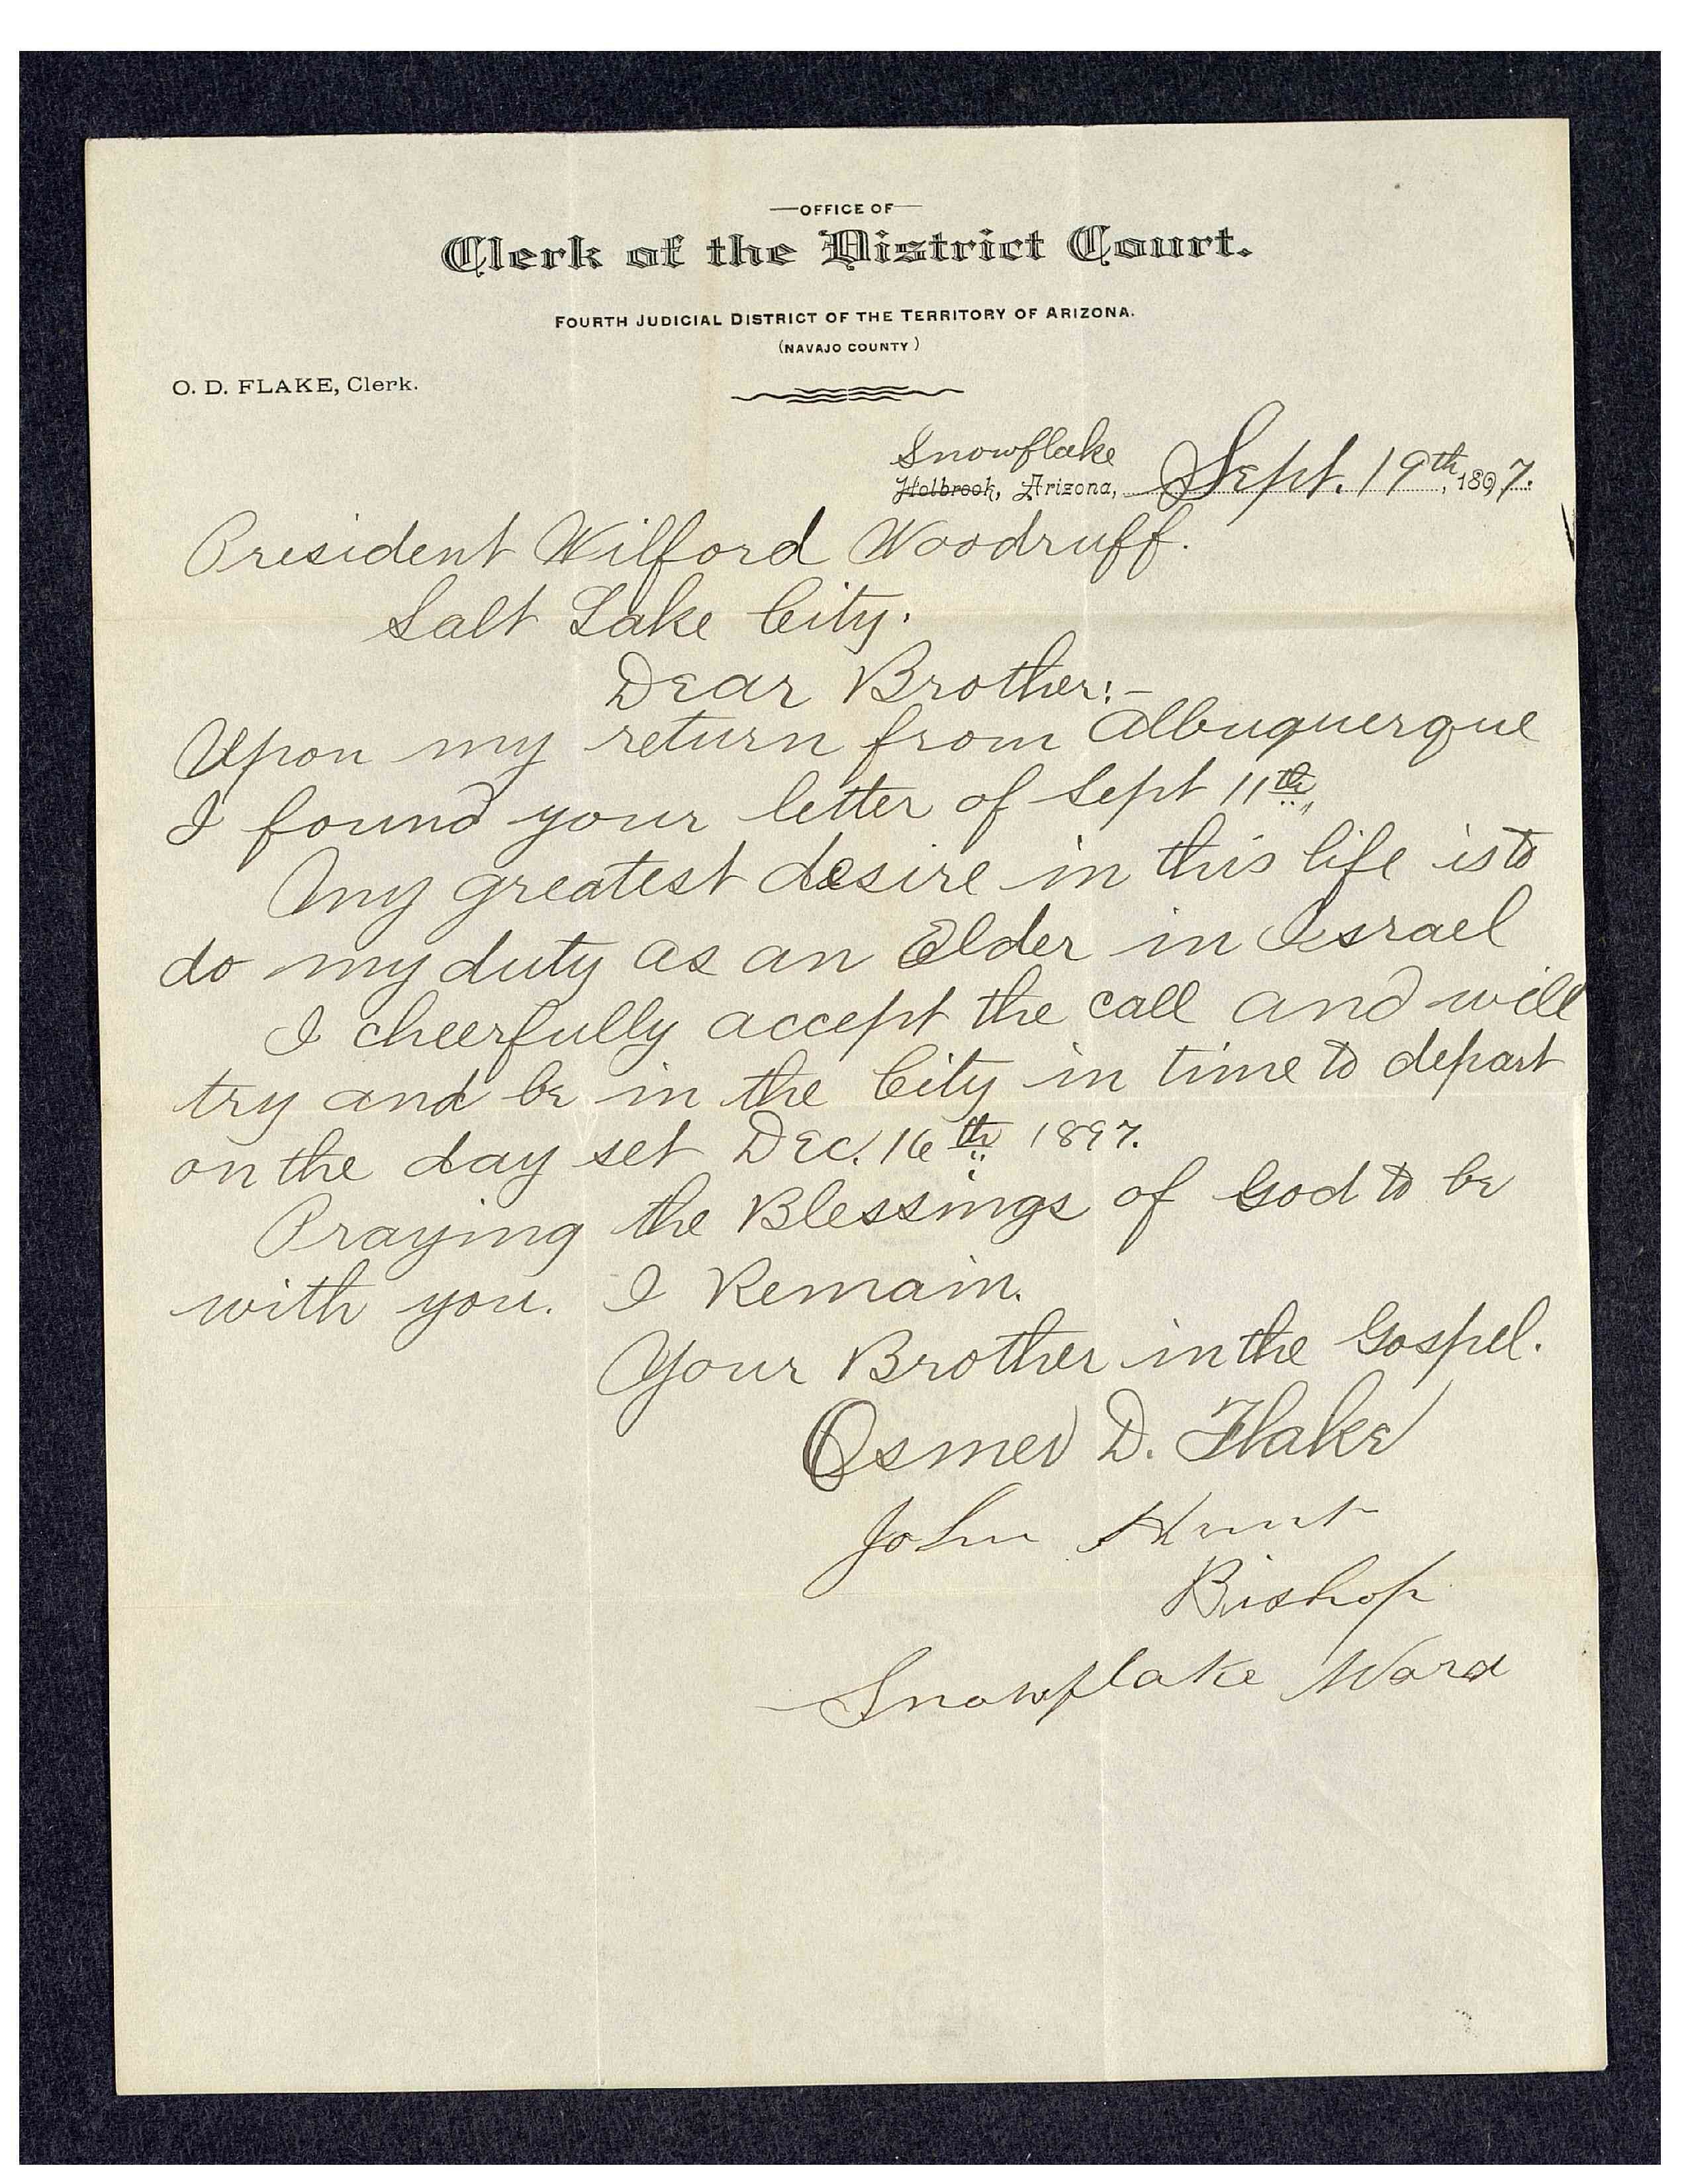 OFFICE OF
Clerk of the District Court.
FOURTH JUDICIAL DISTRICT OF THE TERRITORY OF ARIZONA.
(NAVAJO COUNTY)
O. D. FLAKE, Clerk.
Snowflake
Holbrook, Arizona, Sept. 19th, 1897.
President Wilford Woodruff.
Salt Lake City.
Dear Brother:-
Upon my return from Albuquerque
I found your letter of Sept 11th,
My greatest desire in this life is to
do my duty as an Elder in Israel
I cheerfully accept the call and will
try and be in the City in time to depart
on the day set Dec. 16th 1897.
Praying the Blessings of God to be
with you. I Remain.
Your Brother in the Gospel.
Osmer D. Flake
John Hunt
Bishop
Snowflake Ward